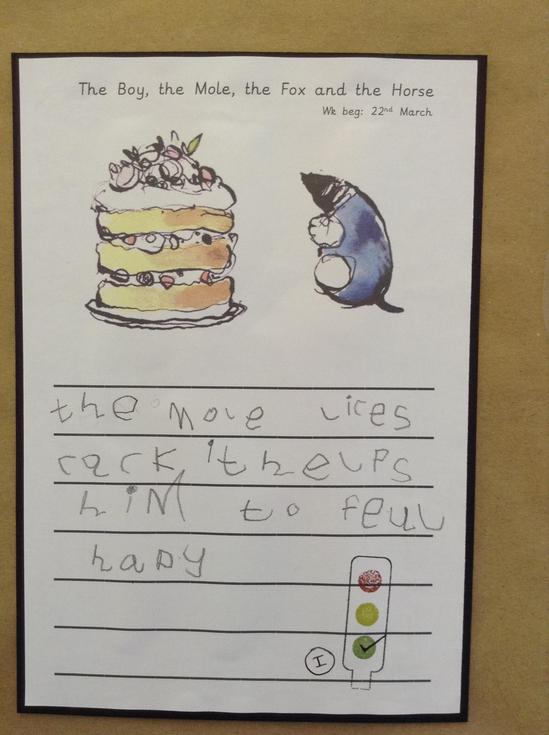 The Boy, the Mole, the Fox and the Horse
Wk beg: 22nd March
the Mole lices
cack it helps
hiM to feull
hapy
I